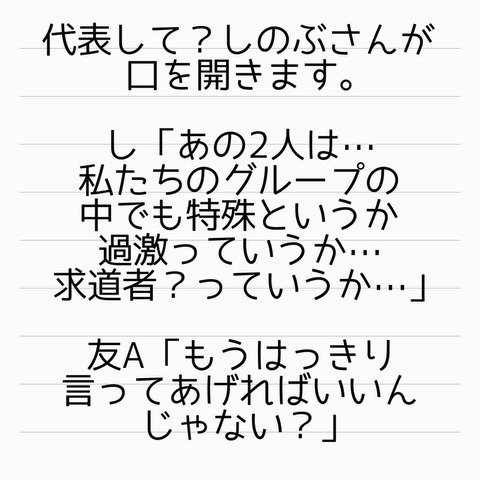 代表して？しのぶさんが
口を開きます。
し「あの2人は…
私たちのグループの
中でも特殊というか
過激っていうか…
求道者？っていうか…」
友A「もうはっきり
言ってあげればいいん
じゃない？」